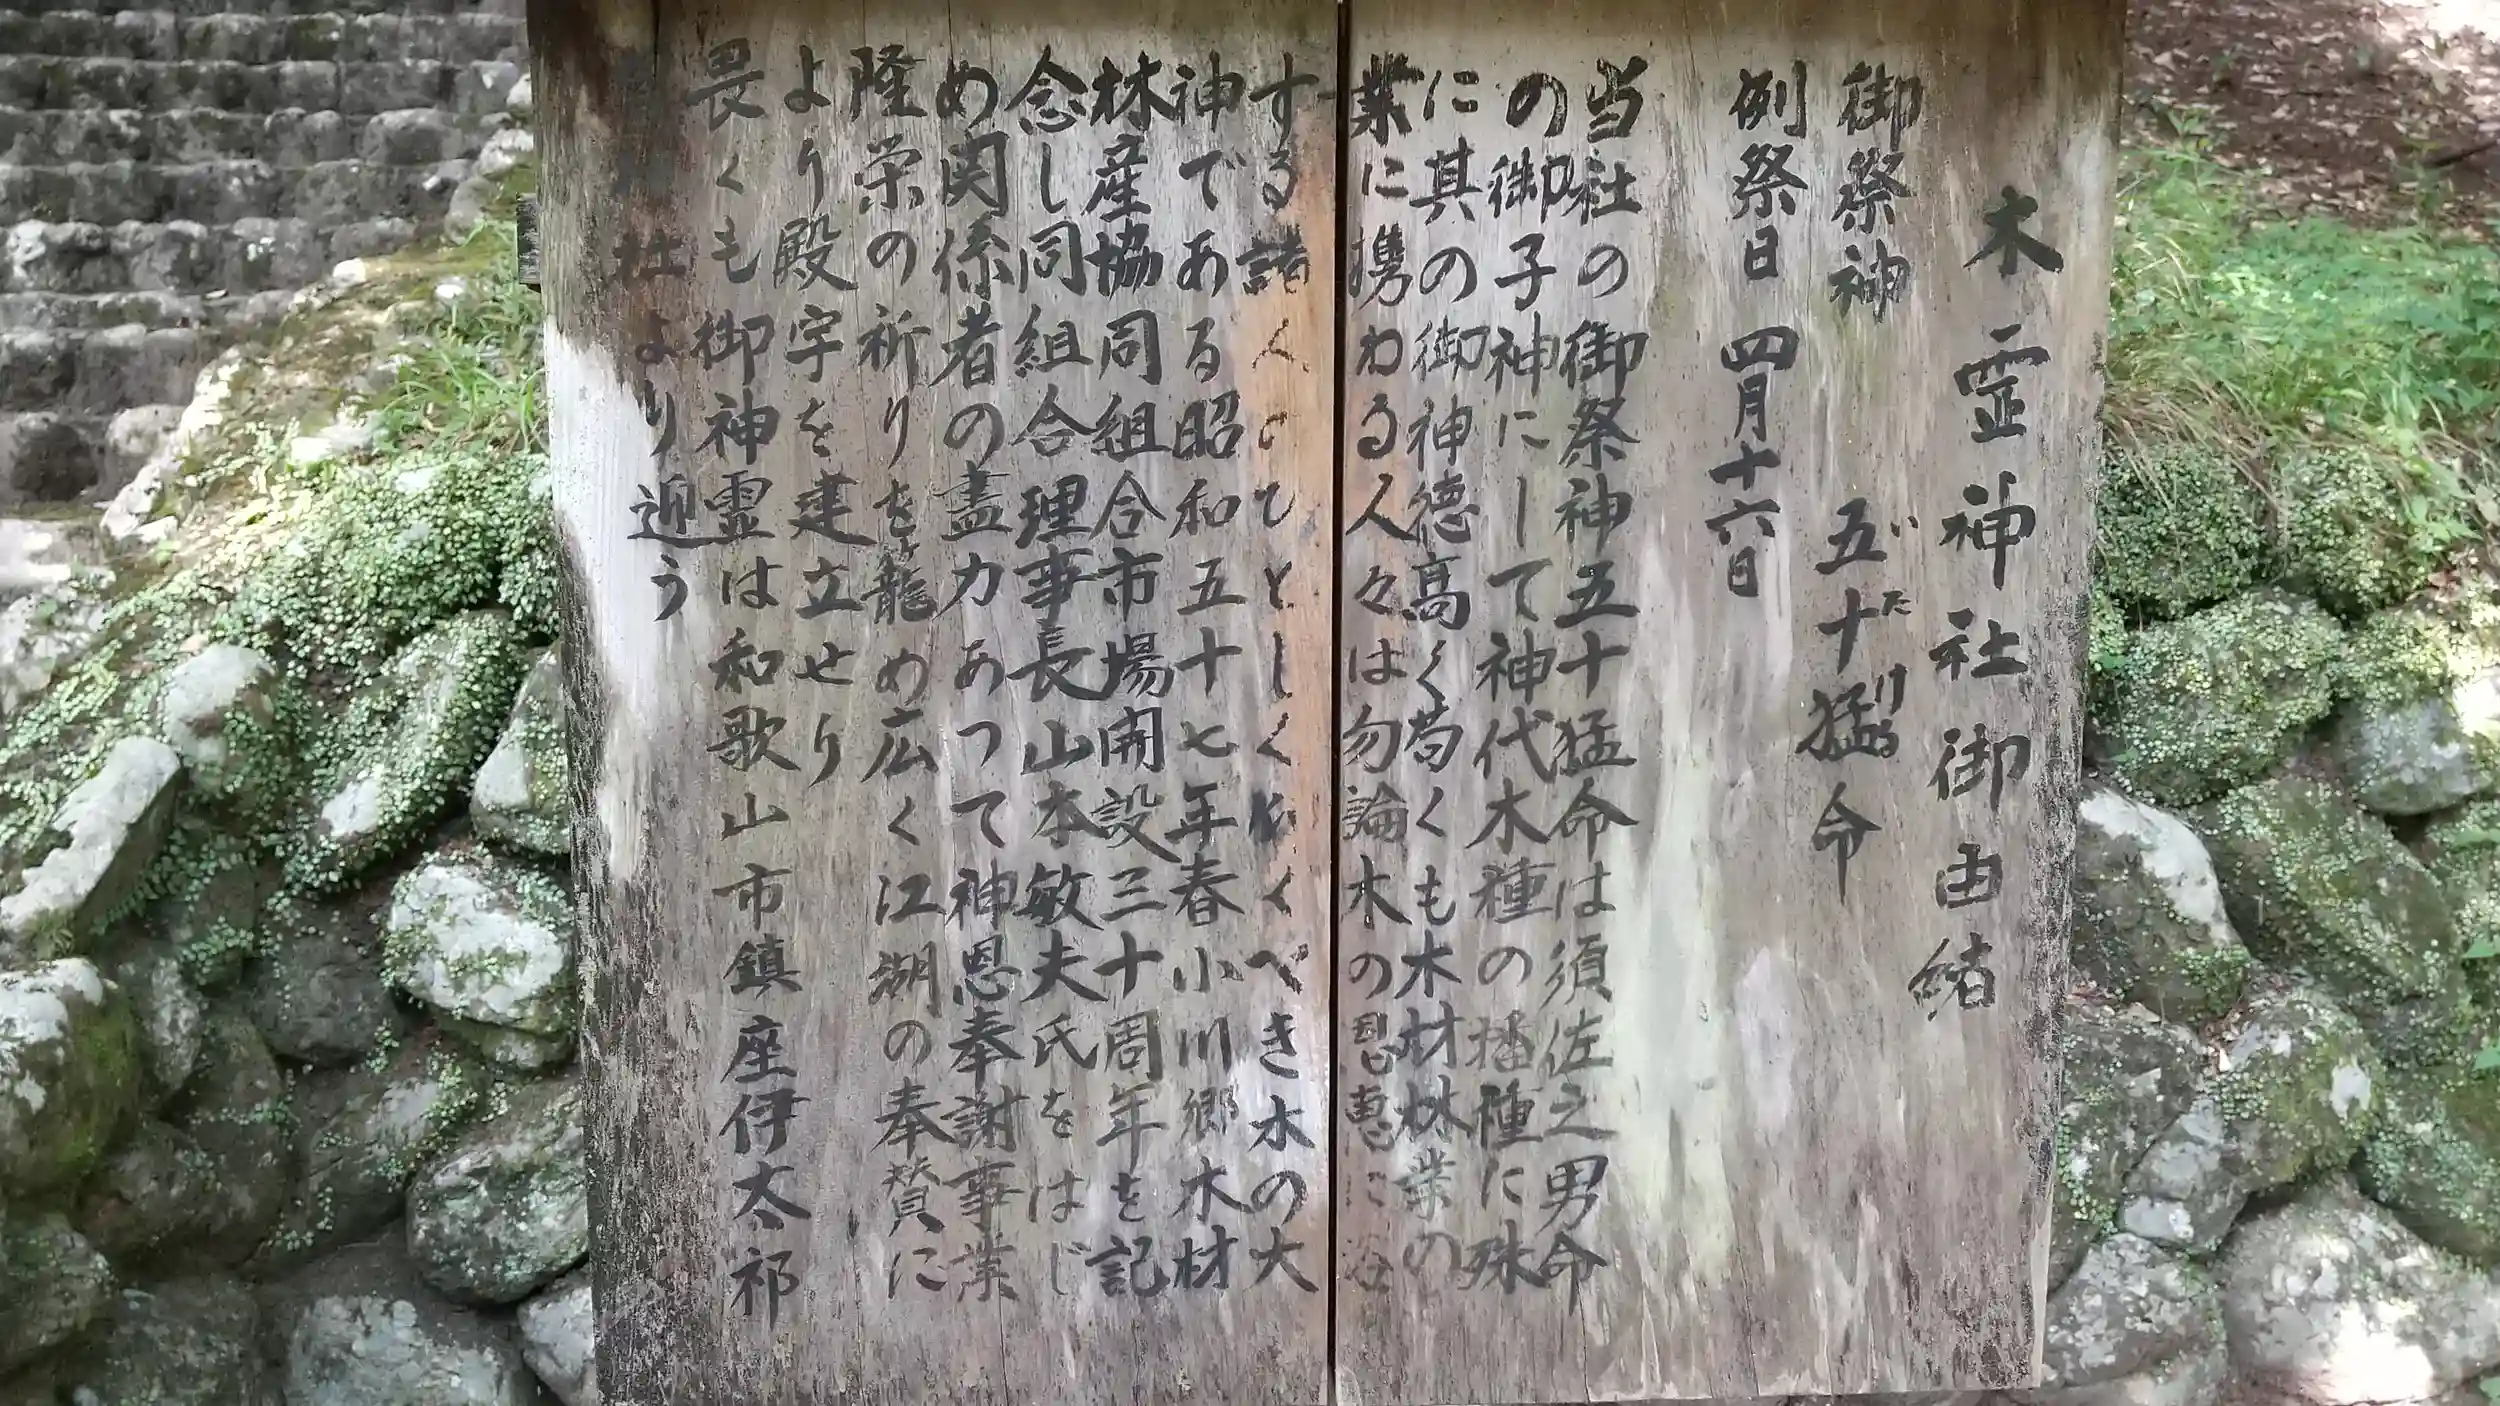 木霊神社御由緒
御祭神 五十猛命
い た ける
例祭日 四月十六日
当社の御祭神五十猛命は須佐之男命
の御子神にして神代木種の播種に殊
に其の御神徳高く苟くも木材林業の
業に携わる人々は勿論木の恩恵に浴
する諸人ひとしく くべき木の大
神である昭和五十七年春小川郷木材
林産協同組合市場開設三十周年を記
念し同組合理事長山本敏夫氏をはじ
め関係者の盡力あつて神恩奉謝事業
隆栄の祈りを龍め広く江湖の奉賛に
より殿宇を建立せり
畏くも御神霊は和歌山市鎮座伊太祁
社より迎う